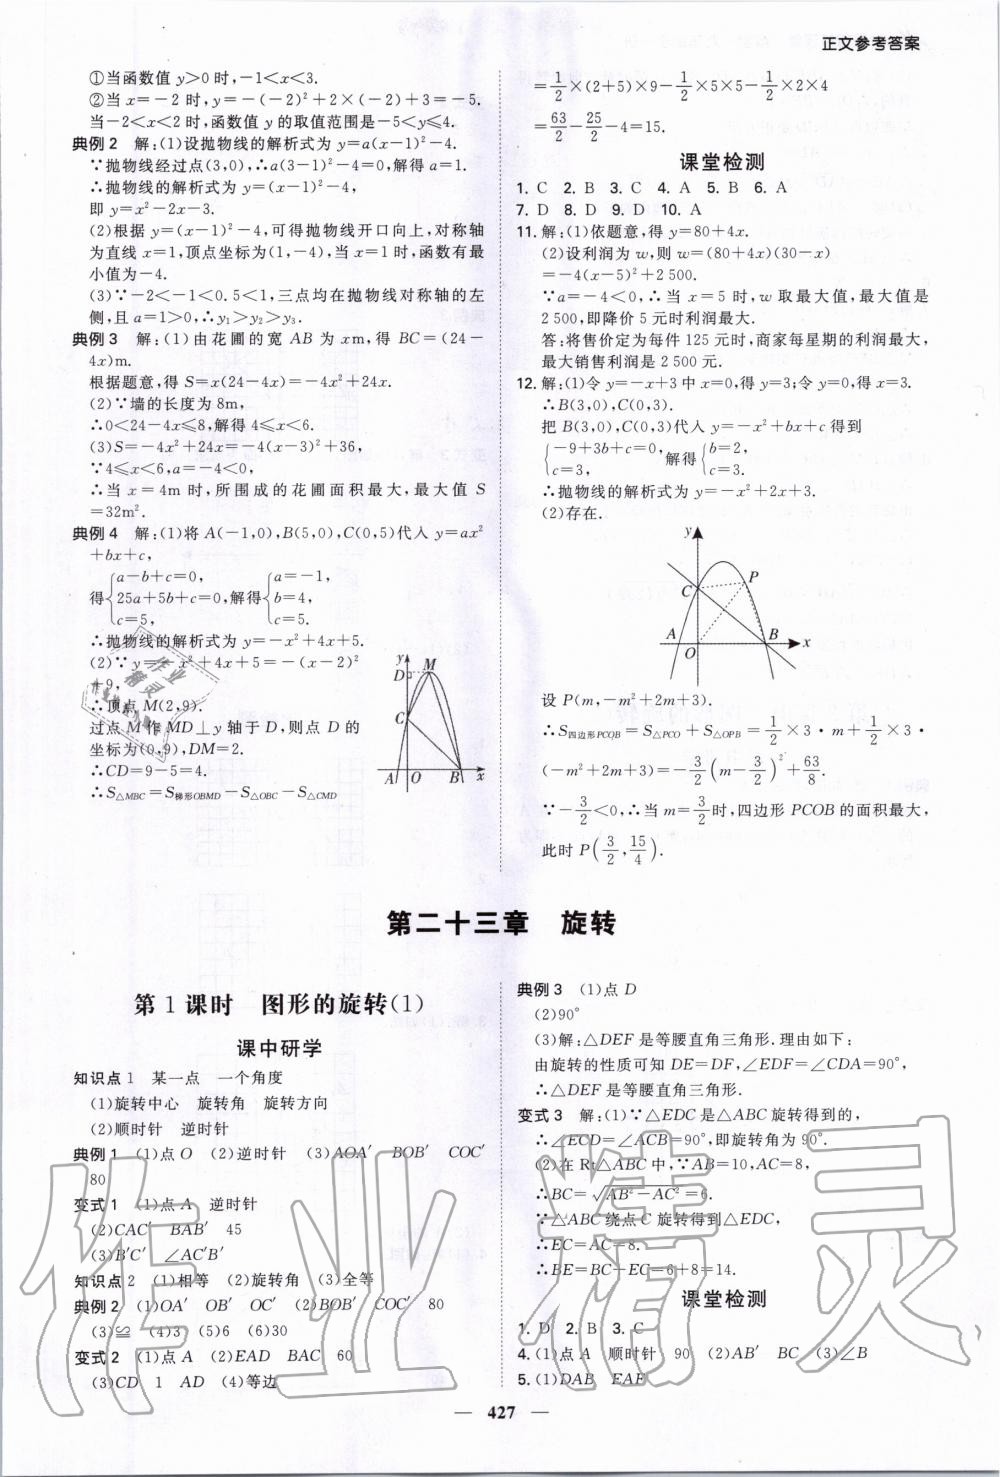 正文参考答案
①当函数值 y>0 时,-1<x<3.
②当 x=-2 时,y=-(-2)²+2×(-2)+3=-5.
当-2<x<2 时,函数值 y 的取值范围是-5<y≤4.
典例 2 解:(1)设抛物线的解析式为 y=a(x-1)²-4.
∵抛物线经过点(3,0),∴a(3-1)²-4=0,解得 a=1.
∴抛物线的解析式为 y=(x-1)²-4,
即 y=x²-2x-3.
(2)根据 y=(x-1)²-4,可得抛物线开口向上,对称轴
为直线 x=1,顶点坐标为(1,-4),当 x=1 时,函数有最
小值为-4.
(3)∵-2<-1<0.5<1,三点均在抛物线对称轴的左
侧,且 a=1>0,∴y₁>y₂>y₃.
典例 3 解:(1)由花圃的宽 AB 为 x m,得 BC=(24-
4x)m.
根据题意,得 S=x(24-4x)=-4x²+24x.
(2)∵墙的长度为 8m,
∴0<24-4x≤8,解得 4≤x<6.
(3)S=-4x²+24x=-4(x-3)²+36,
∵4≤x<6,a=-4<0,
∴当 x=4m 时,所围成的花圃面积最大,最大值 S
=32m².
典例 4 解:(1)将 A(-1,0),B(5,0),C(0,5)代入 y=ax²
+bx+c,
得{a-b+c=0, 25a+5b+c=0, c=5, 解得{a=-1, b=4, c=5.
∴抛物线的解析式为 y=-x²+4x+5.
(2)∵y=-x²+4x+5=-(x-2)²
+9,
∴顶点 M(2,9).
过点 M 作 MD⊥y 轴于 D,则点 D 的
坐标为(0,9),DM=2.
∴CD=9-5=4.
∴S△MBC=S梯形OBMD-S△OBC-S△CMD
y D M C A O B x
=1/2×(2+5)×9-1/2×5×5-1/2×2×4
=63/2-25/2-4=15.
课堂检测
1. C 2. B 3. C 4. A 5. B 6. A
7. D 8. D 9. D 10. A
11. 解:(1)依题意,得 y=80+4x.
(2)设利润为 w,则 w=(80+4x)(30-x)
=-4(x-5)²+2 500.
∵a=-4<0,∴当 x=5 时,w 取最大值,最大值是
2 500,即降价 5 元时利润最大.
答:将售价定为每件 125 元时,商家每星期的利润最大,
最大销售利润是 2 500 元.
12. 解:(1)令 y=-x+3 中 x=0,得 y=3;令 y=0,得 x=3.
∴B(3,0),C(0,3).
把 B(3,0),C(0,3)代入 y=-x²+bx+c 得到
{-9+3b+c=0, c=3, 解得{b=2, c=3.
∴抛物线的解析式为 y=-x²+2x+3.
(2)存在.
y C P A O B x
设 P(m,-m²+2m+3).
∴S四边形PCOB=S△PCO+S△OPB=1/2×3·m+1/2×3·
(-m²+2m+3)=-3/2(m-3/2)²+63/8.
∵-3/2<0,∴当 m=3/2时,四边形 PCOB 的面积最大,
此时 P(3/2,15/4).
第二十三章 旋转
第 1 课时 图形的旋转(1)
课中研学
知识点 1 某一点 一个角度
(1)旋转中心 旋转角 旋转方向
(2)顺时针 逆时针
典例 1 (1)点 O (2)逆时针 (3)AOA′ BOB′ COC′
80
变式 1 (1)点 A 逆时针
(2)CAC′ BAB′ 45
(3)B′C′ ∠AC′B′
知识点 2 (1)相等 (2)旋转角 (3)全等
典例 2 (1)OA′ OB′ OC′ (2)BOB′ COC′ 80
(3)≌ (4)3 (5)6 (6)30
变式 2 (1)点 A (2)EAD BAC 60
(3)CD 1 AD (4)等边
典例 3 (1)点 D
(2)90°
(3)解:△DEF 是等腰直角三角形.理由如下:
由旋转的性质可知 DE=DF,∠EDF=∠CDA=90°,
∴△DEF 是等腰直角三角形.
变式 3 解:(1)∵△EDC 是△ABC 旋转得到的,
∴∠ECD=∠ACB=90°,即旋转角为 90°.
(2)在 Rt△ABC 中,∵AB=10,AC=8,
∴BC=√AB²-AC²=6.
∵△ABC 绕点 C 旋转得到△EDC,
∴EC=AC=8.
∴BE=BC+EC=6+8=14.
课堂检测
1. D 2. B 3. C
4. (1)点 A 顺时针 90 (2)AB′ BC (3)∠B
5. (1)DAB EAE
— 427 —
作业精灵
作业精灵